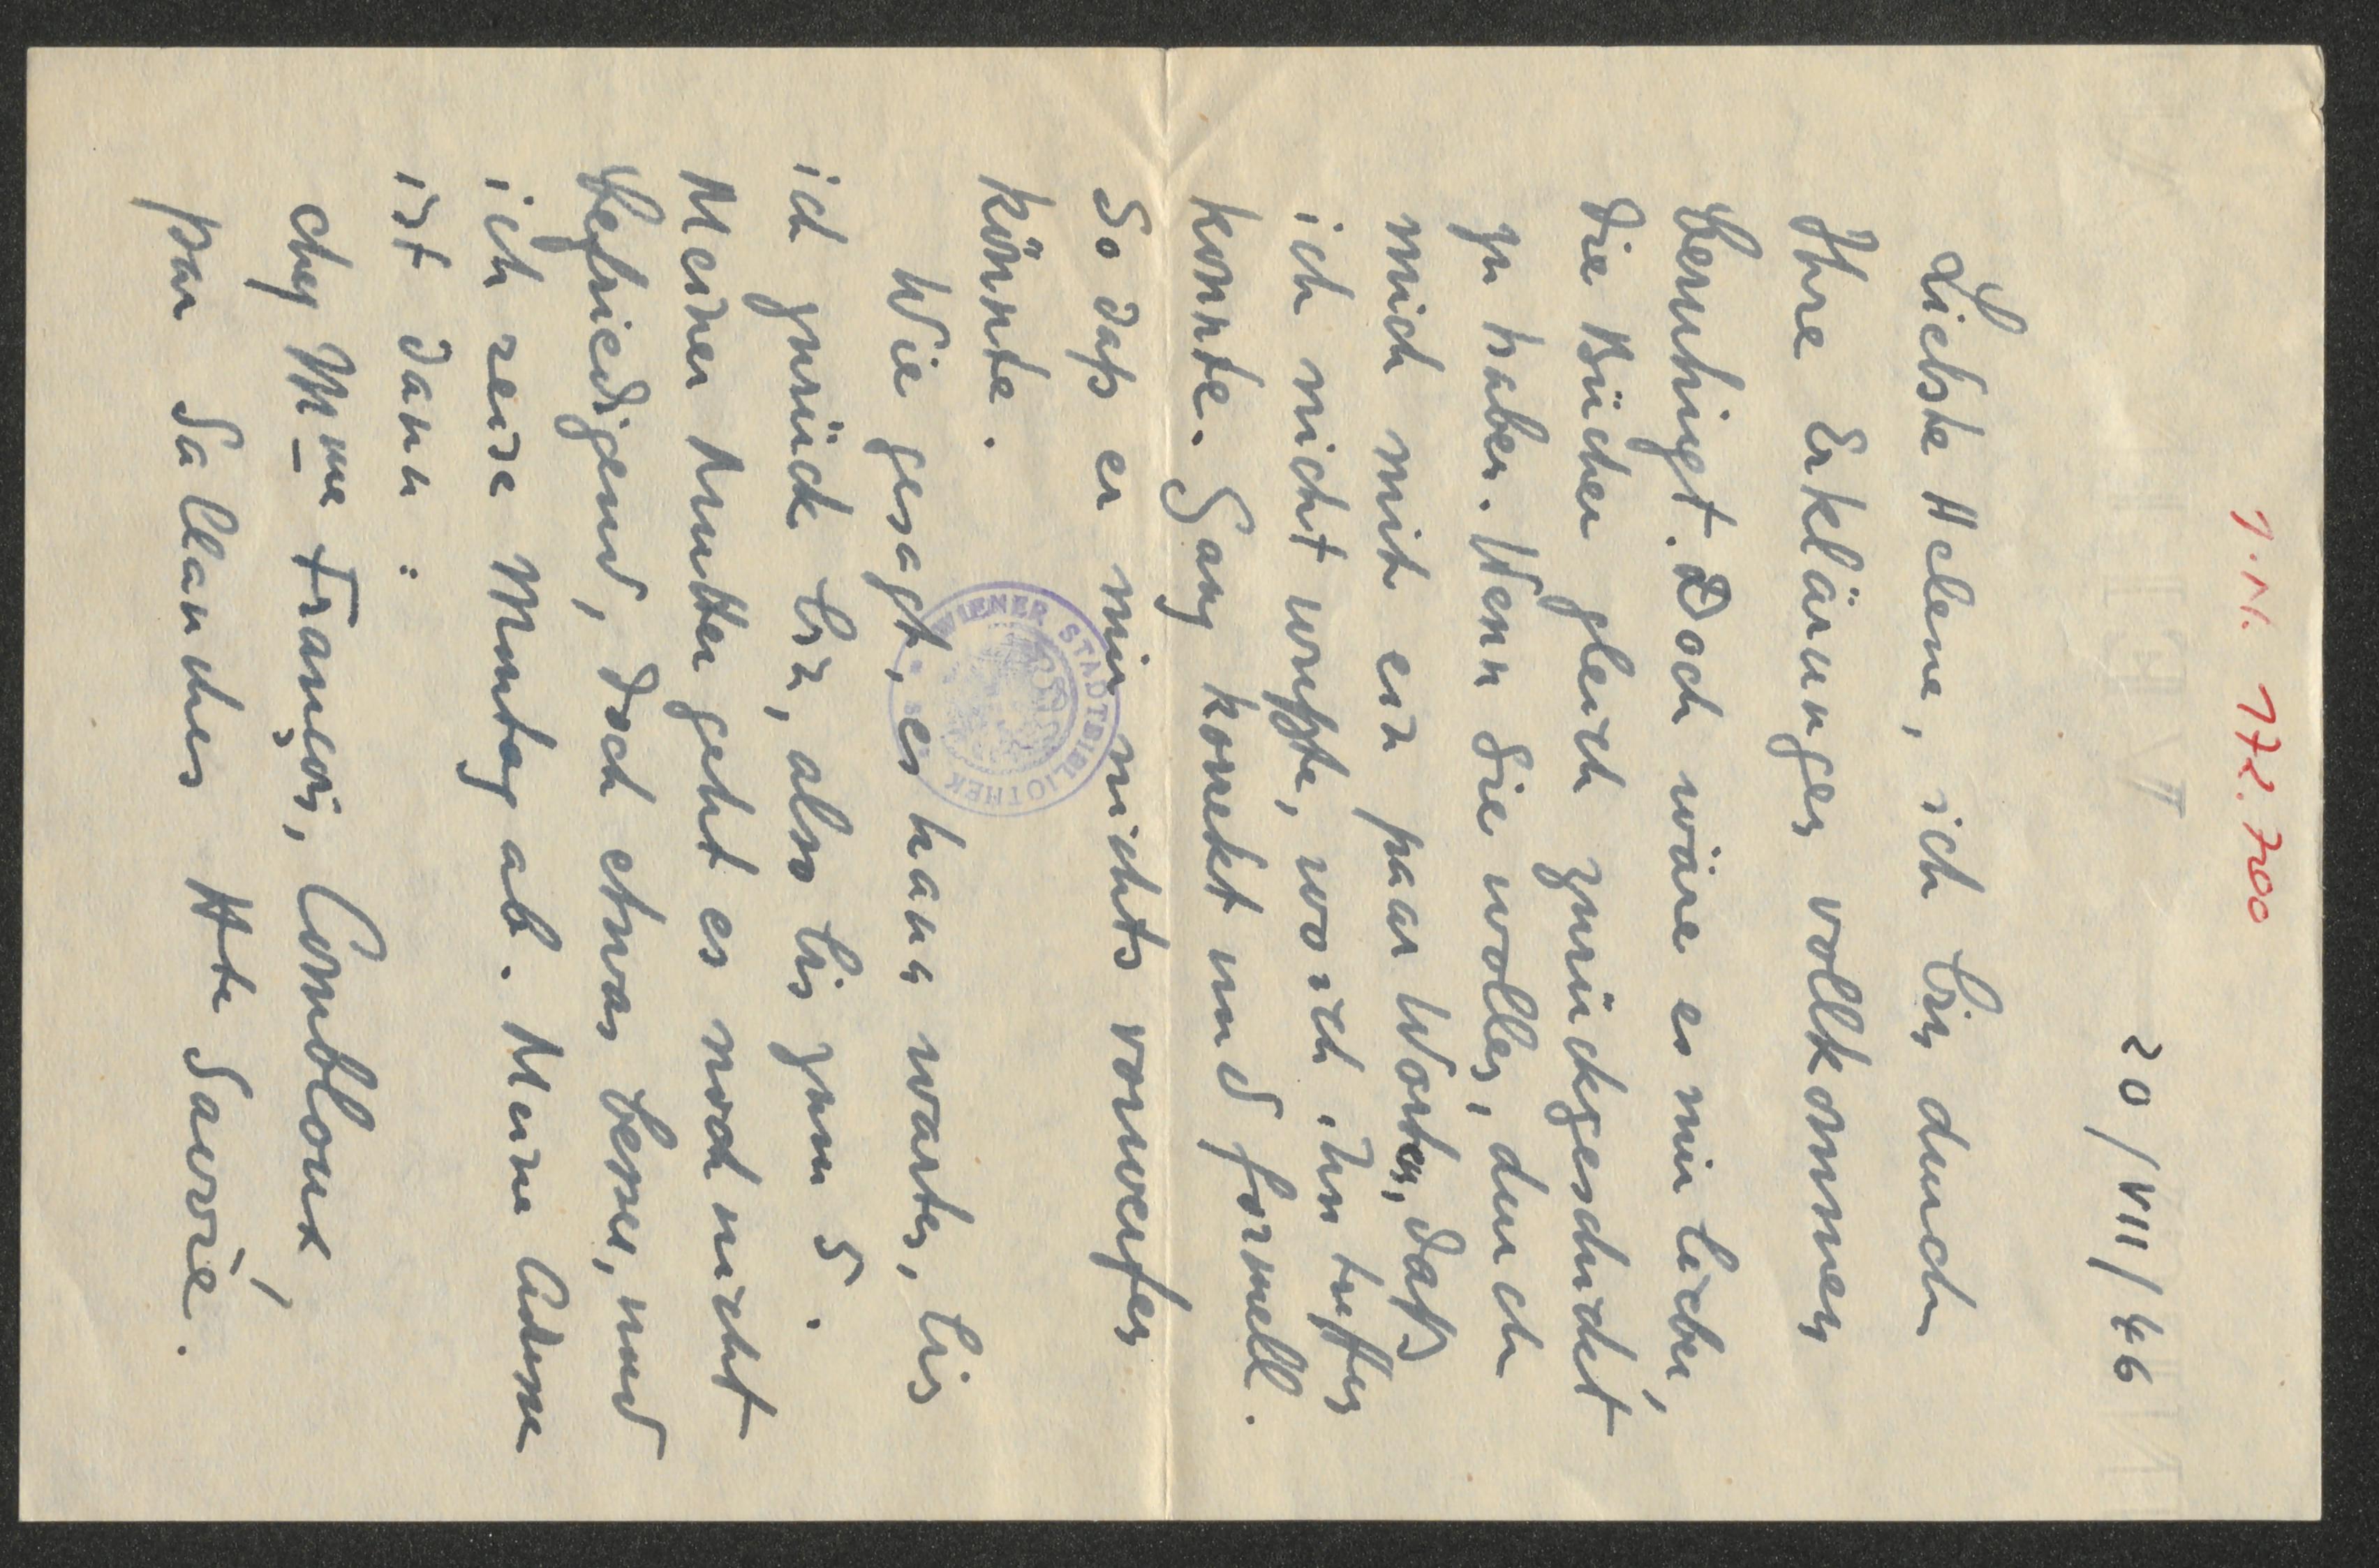 J.N. 172.700
20/VIII/46
Liebste Helene, ich bin durch
Ihre Erklärungen vollkommen
beruhigt. Doch wäre es mir lieber,
die Bücher gleich zurückgeschickt
zu haben. Wenn Sie wollen, durch
mich mit ein paar Worten, daß
ich nicht wußte, wo ich ihn treffen
konnte. Ganz korrekt und formell.
So daß er mir nichts vorwerfen
könnte.
Wie gesagt, es kann warten, bis
ich zurück bin, also bis zum 5.
Meiner Mutter geht es noch nicht
befriedigend, doch etwas besser, und
ich reise Montag ab. Meine Adresse
ist dann:
chez Mme François, Combloux,
par Sallanches Hte Savoie.
WIENER STADTBIBLIOTHEK